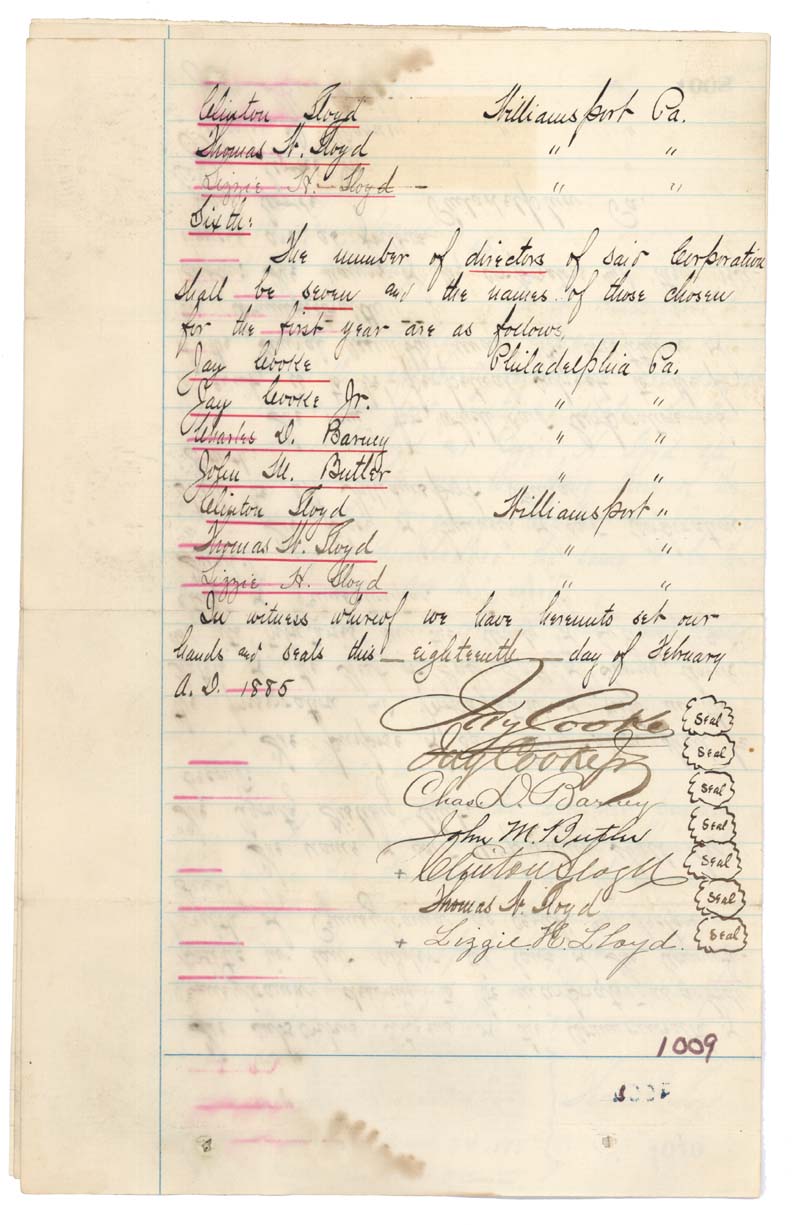 Clinton Lloyd Williamsport Pa.
Thomas W. Lloyd " "
Lizzie H. Lloyd – " "
Sixth:
The number of directors of said Corporation
shall be seven and the names of those chosen
for the first year are as follows,
Jay Cooke Philadelphia Pa.
Jay Cooke Jr. " "
Charles D. Barney " "
John M. Butler " "
Clinton Lloyd Williamsport "
Thomas W. Lloyd " "
Lizzie H. Lloyd " "
In witness whereof we have hereunto set our
hands and seals this – eighteenth – day of February
A.D. 1885
Jay Cooke Seal
Jay Cooke Jr Seal
Chas. D. Barney Seal
John M. Butler Seal
+ Clinton Lloyd Seal
Thomas W. Lloyd Seal
+ Lizzie H. Lloyd. Seal
1009